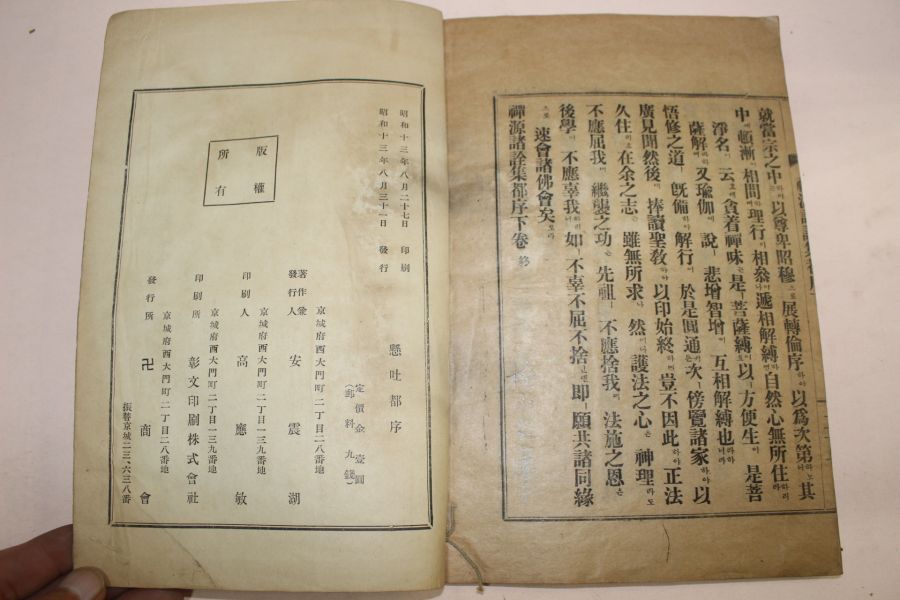 就當宗之中하야以尊卑昭穆으로展轉倫序하야以爲次第하노니其
中에頓漸이相間하며理行이相叅하야遞相解縛하면自然心無所住하리라
淨名이云호대貪着禪味는是菩薩縛이오以方便生은是菩
薩解라하며又瑜伽에說호대悲增智增이互相解縛也라하니라
悟修之道가旣備하며解行이於是圓通커든次에傍覽諸家하야以
廣見聞然後에捧讀聖敎하야以印始終이니豈不因此하야正法
久住리오在余之志는雖無所求나然이나護法之心은神理라도
不應屈我며繼襲之功은先祖가不應捨我며法施之恩은
後學이不應辜我하리니如不辜不屈不捨인댄即願共諸同緣으로
速會諸佛會矣로라
禪源諸詮集都序下卷 終
昭和十三年八月二十七日 印刷
昭和十三年八月三十一日 發行
版權所有
懸吐都序
定價金 壹圓
(郵料 九錢)
京城府西大門町二丁目二八番地
著作兼發行人 安震湖
京城府西大門町二丁目一三九番地
印刷人 高應敏
京城府西大門町二丁目一三九番地
印刷所 彰文印刷株式會社
京城府西大門町二丁目二八番地
發行所 卍商會
振替京城二三、六三八番